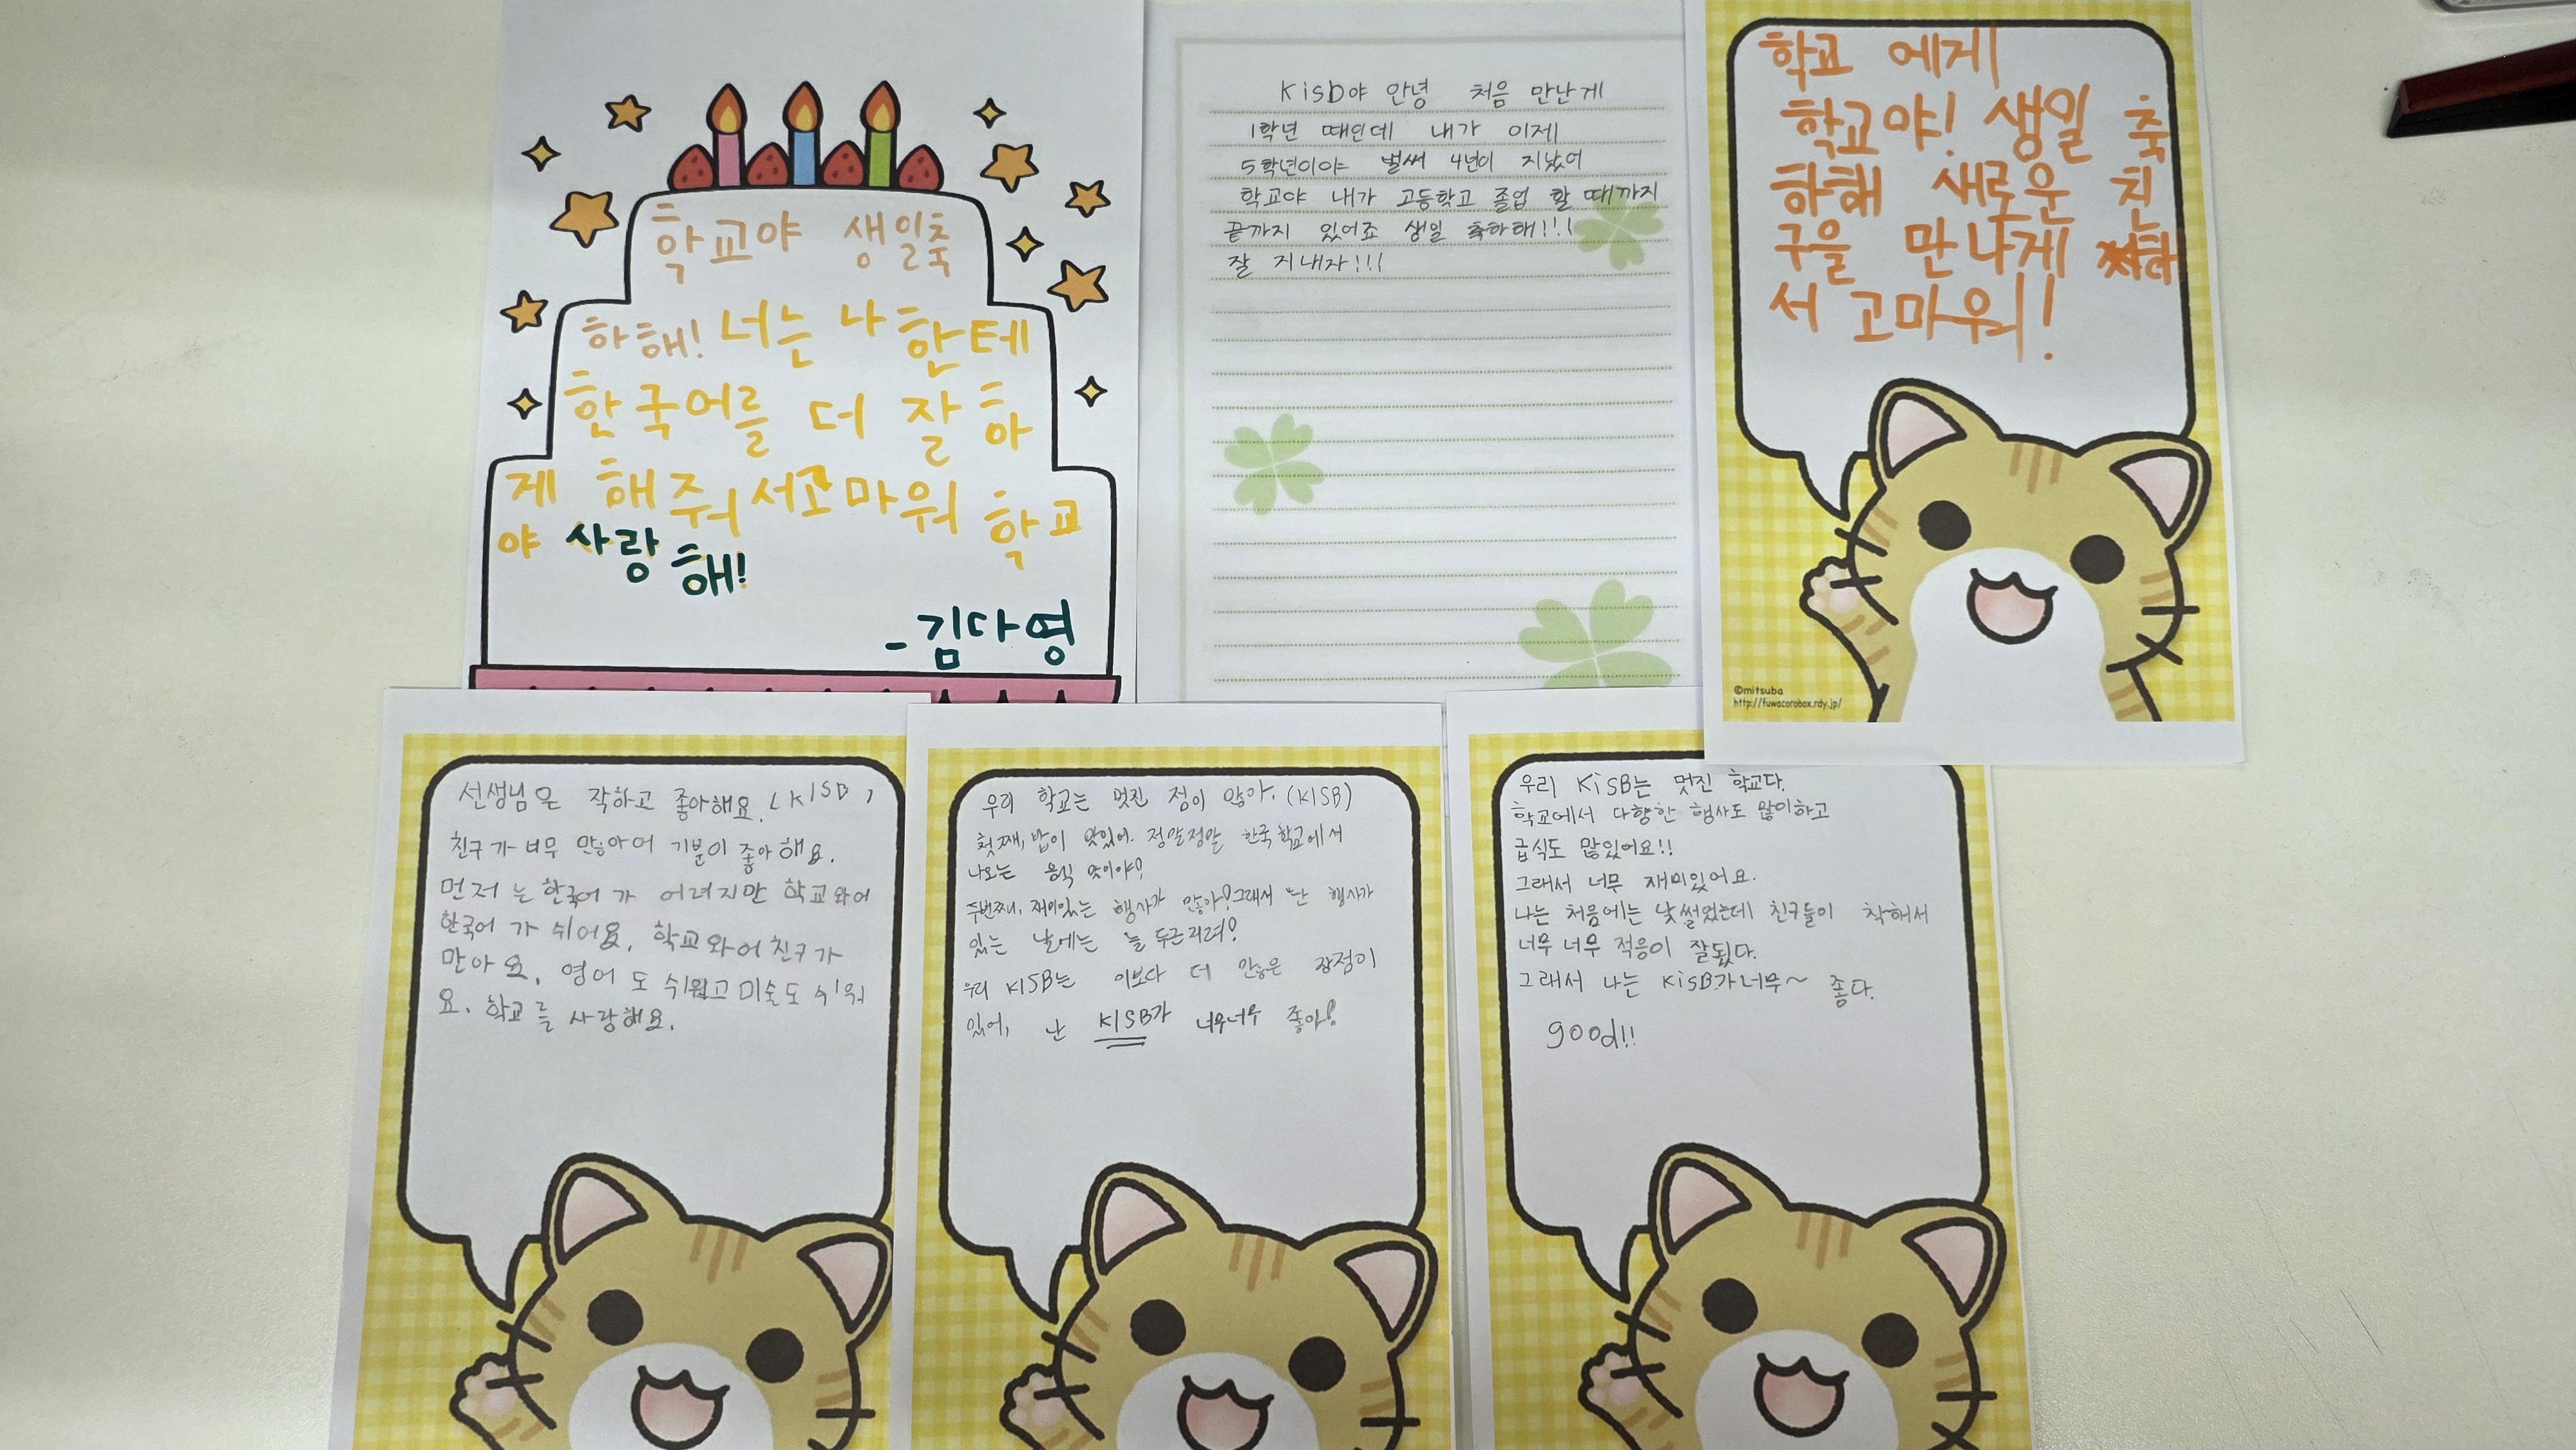 학교야 생일축
하해! 너는 나한테
한국어를 더 잘 하
게 해줘서고마워 학교
야 사랑해!
-김다영
Kisb야 안녕 처음 만난게
1학년 때인데 내가 이제
5학년이야 벌써 4년이 지났어
학교야 내가 고등학교 졸업 할 때까지
끝까지 있어죠 생일 축하해!!!
잘 지내자!!!
학교 에게
학교야! 생일 축
하해 새로운 친
구을 만나게 해
서 고마워!
©mitsuba
http://fuwacorobox.rdy.jp/
선생님은 작하고 좋아해요. (KISB)
친구가 너무 많아어 기분이 좋아해요.
먼저는 한국어가 어려지만 학교와어
한국어 가 쉬어요. 학교와어 친구가
만아요. 영어 도 쉬워고 미술도 쉬워
요. 학교를 사랑해요.
우리 학교는 멋진 점이 많아. (KISB)
첫째, 밥이 맛있어. 정말정말 한국 학교에서
나오는 음식 맛이야!
두번째, 재미있는 행사가 많아! 그래서 난 행사가
있는 날에는 늘 두근거려!
우리 KISB는 이보다 더 많은 장점이
있어, 난 KISB가 너무너무 좋아!
우리 KiSB는 멋진 학교다.
학교에서 다향한 행사도 많이하고
급식도 많있어요!!
그래서 너무 재미있어요.
나는 처음에는 낯썰었는데 친구들이 착해서
너무 너무 적응이 잘됬다.
그래서 나는 KiSB가너무~ 좋다.
good!!